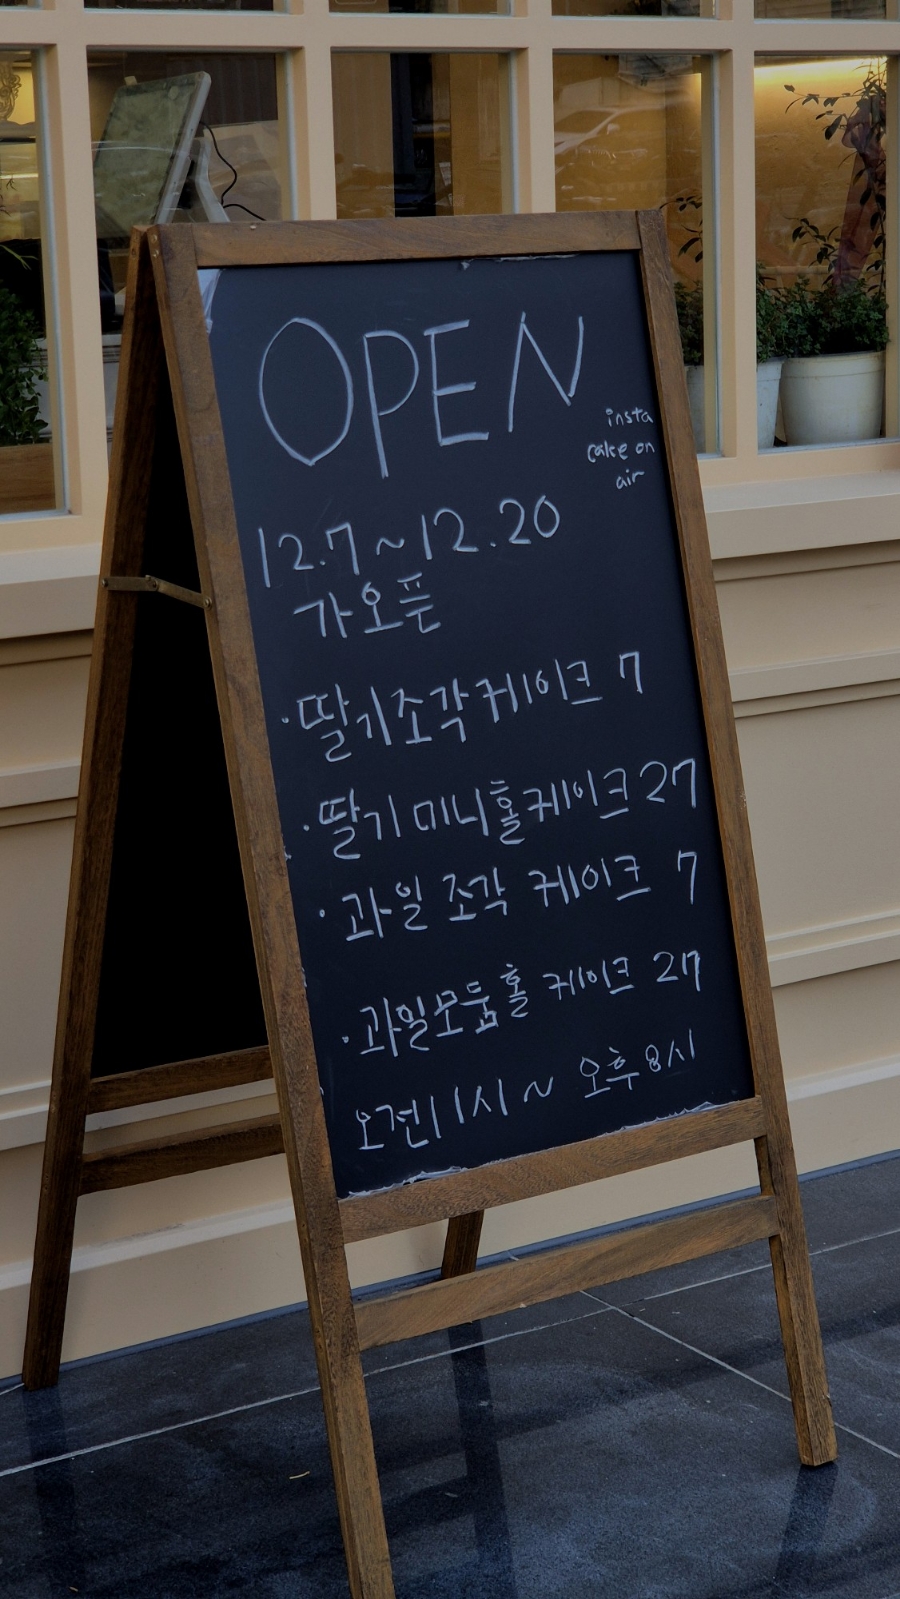 OPEN
insta
cake on
air
12.7~12.20
가오픈
·딸기조각케이크 7
·딸기미니홀케이크 27
·과일 조각 케이크 7
·과일모둠홀 케이크 27
오전11시~ 오후8시